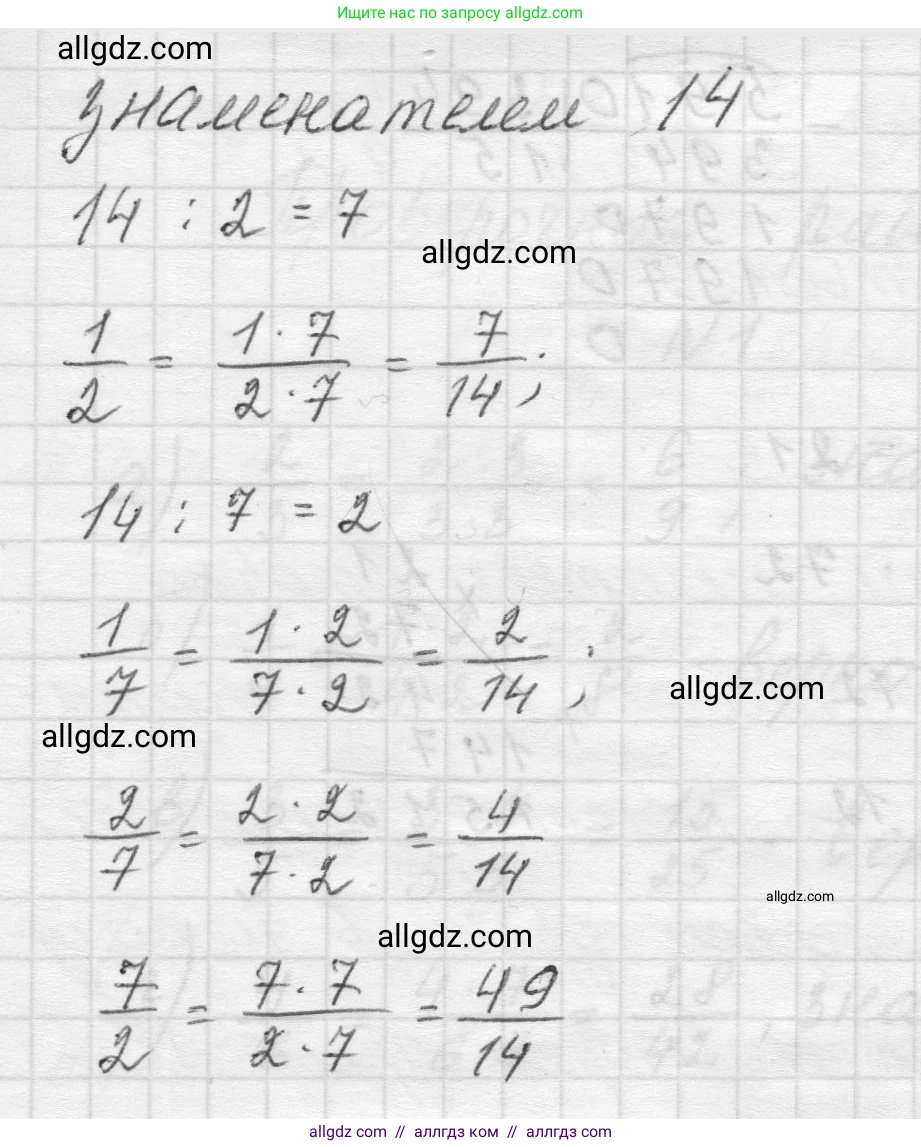 Ищите нас по запросу allgdz.com
allgdz.com
знаменателем 14
14 : 2 = 7
allgdz.com
1/2 = 1·7/2·7 = 7/14;
14 : 7 = 2
1/7 = 1·2/7·2 = 2/14;
allgdz.com
allgdz.com
2/7 = 2·2/7·2 = 4/14
allgdz.com
allgdz.com
7/2 = 7·7/2·7 = 49/14
allgdz.com // аллгдз ком // аллгдз.com